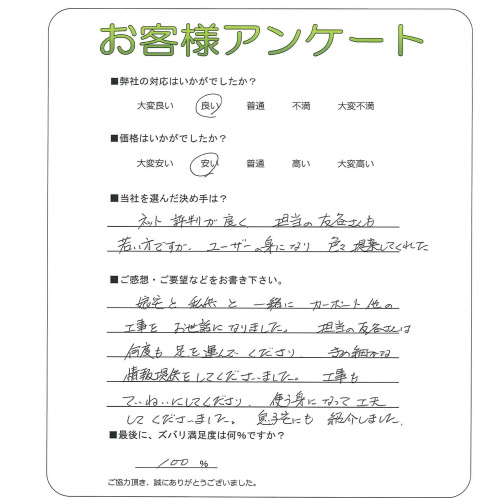 お客様アンケート
■弊社の対応はいかがでしたか？
大変良い 良い 普通 不満 大変不満
■価格はいかがでしたか？
大変安い 安い 普通 高い 大変高い
■当社を選んだ決め手は？
ネット評判が良く、担当の友各さんも
若い方ですが、ユーザーの身になり 色々提案してくれた
■ご感想・ご要望などをお書き下さい。
と 私供と一緒に カーポート他の
工事を お世話になりました。 担当の友各さんは
何度も足を運んでくださり、きめ細かな
情報提供をしてくださいました。 工事も
ていねいにしてくださり、使う身になって工夫
してくださいました。 息子宅にも 紹介しました。
■最後に、ズバリ満足度は何%ですか？
100 %
ご協力頂き、誠にありがとうございました。